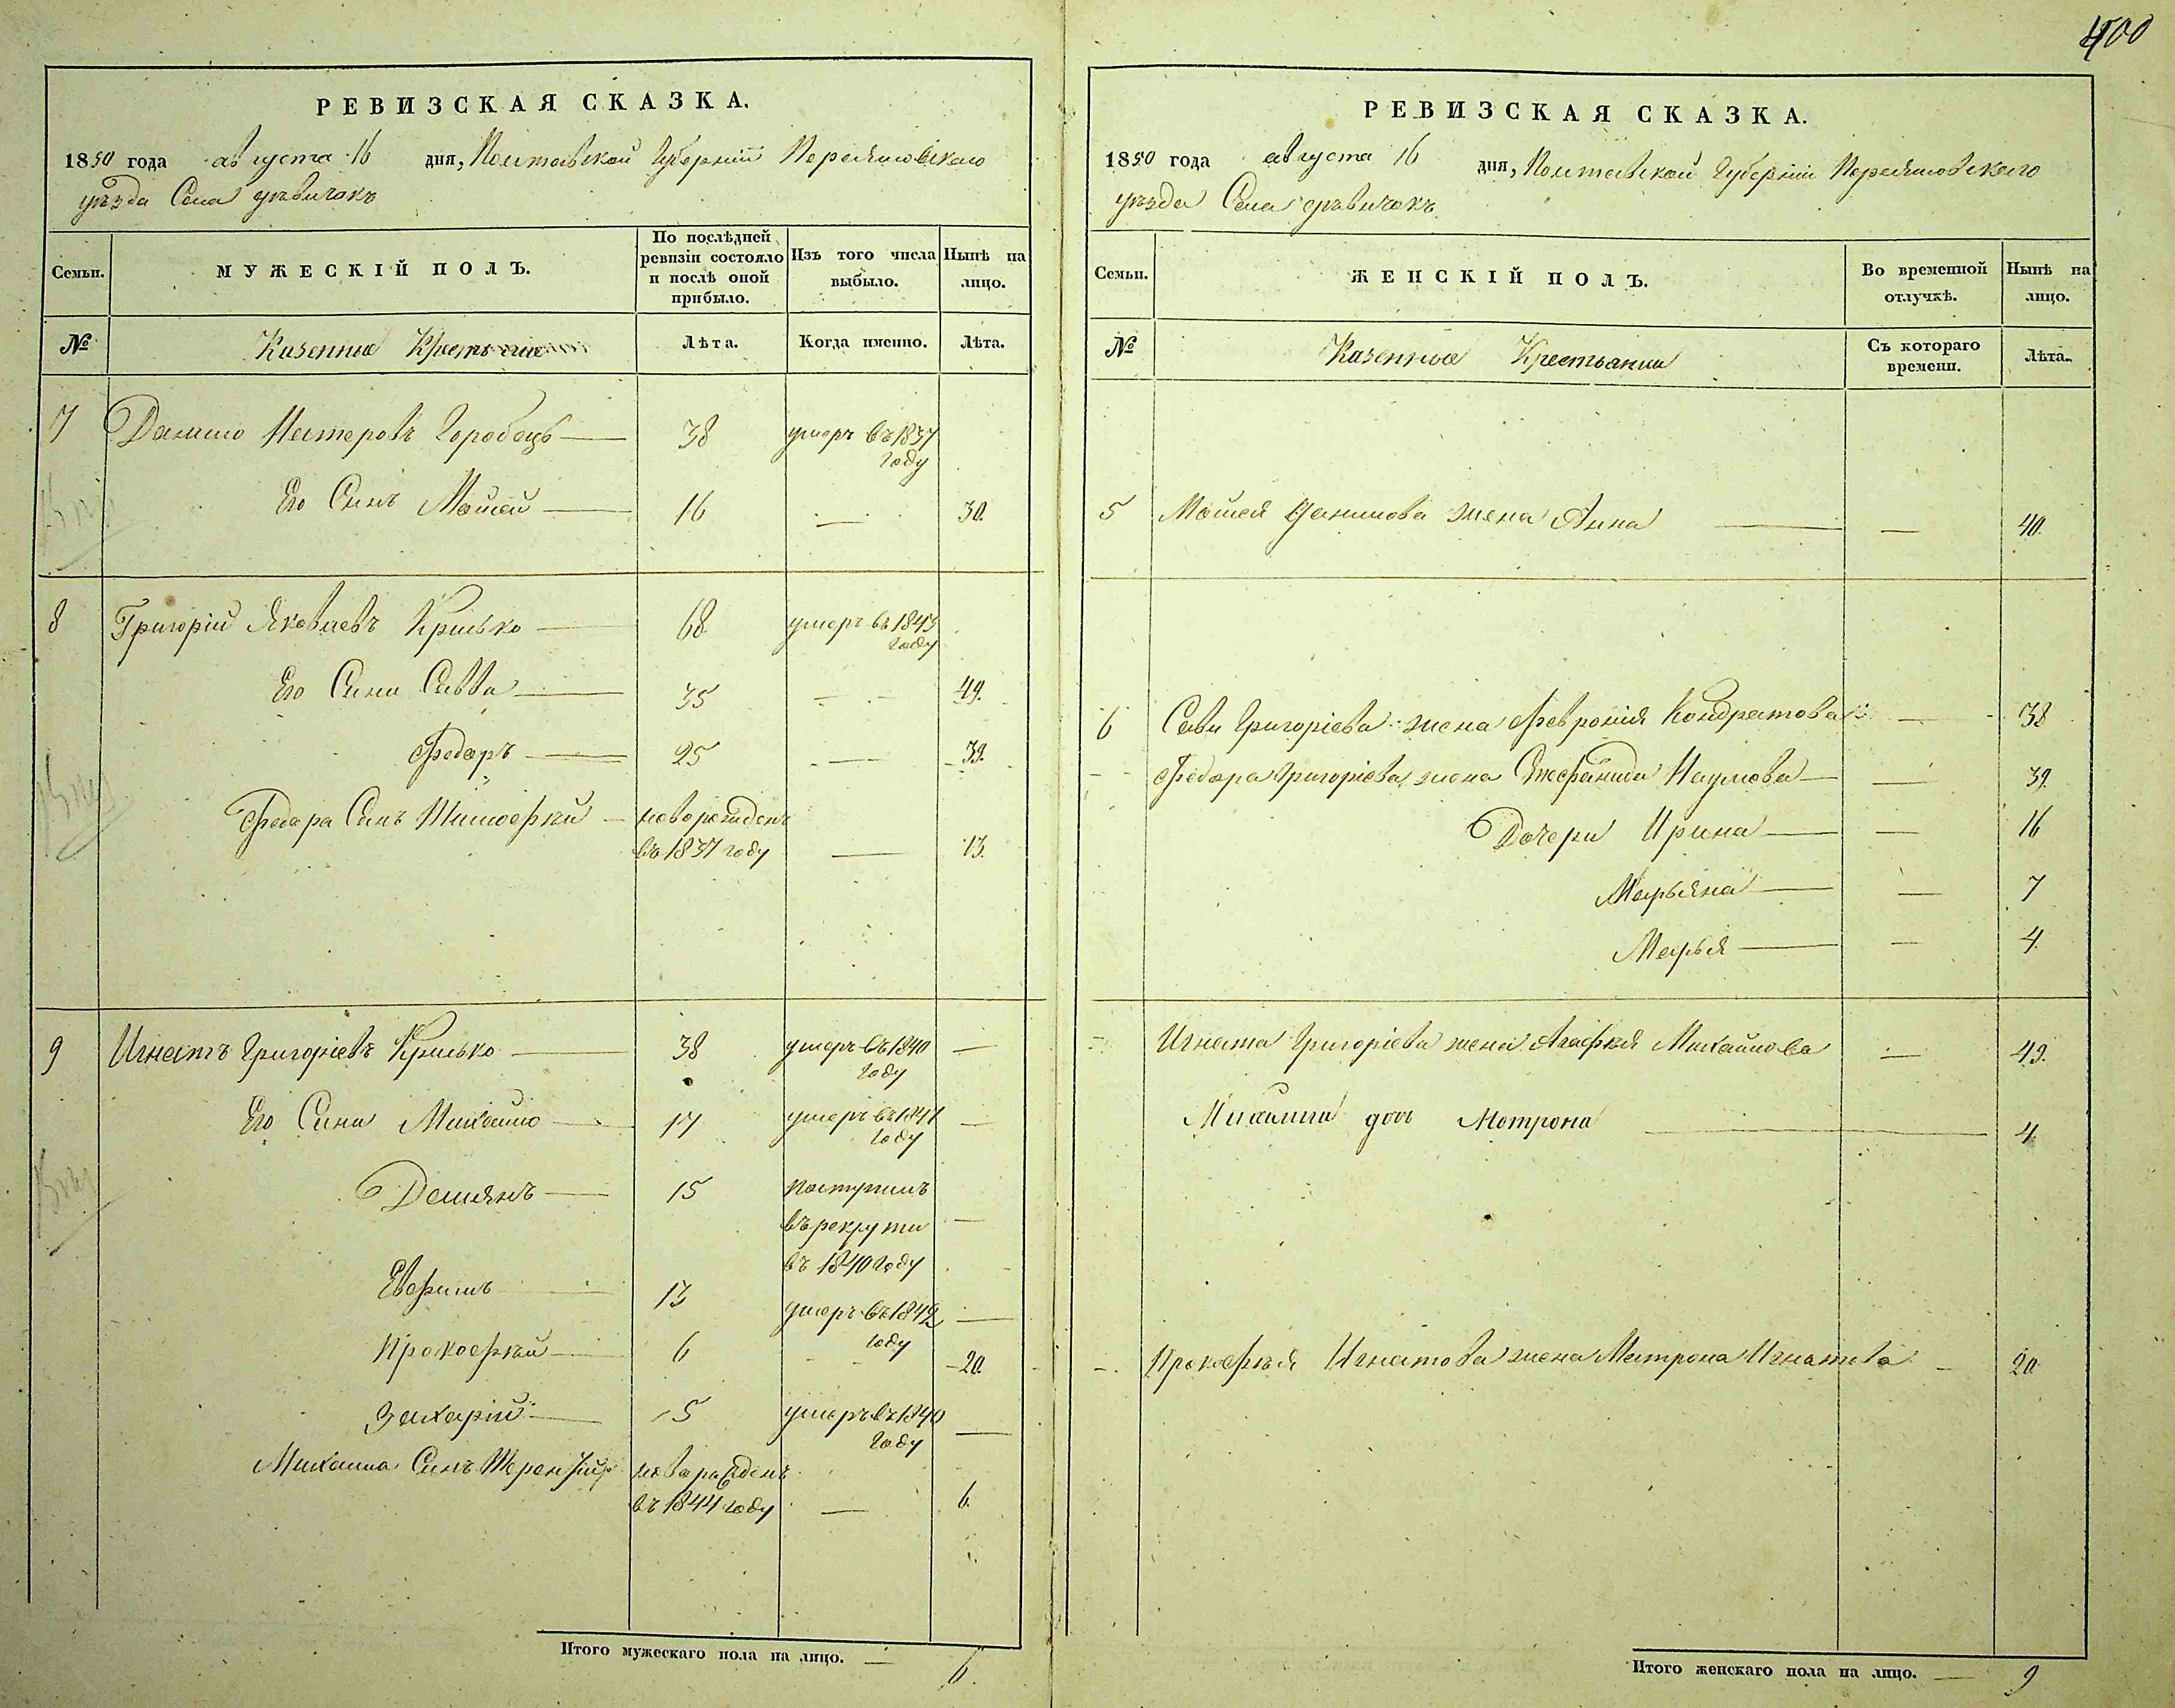 400
РЕВИЗСКАЯ СКАЗКА.
1850 года августа 16 дня, Полтавской Губерніи Переяславского
уѣзда Села дѣвичокъ
Семьи.
МУЖЕСКІЙ ПОЛЪ.
По послѣдней
ревизіи состояло
и послѣ оной
прибыло.
Изъ того числа
выбыло.
Нынѣ на
лицо.
№
Казенные Крестьяне
Лѣта.
Когда именно.
Лѣта.
7 Данило Нестеровъ Горобець 38 умеръ въ 1837
году
Его Синъ Мойсей 16 — 30.
8 Григорій Яковлевъ Крилько 68 умеръ въ 1843
году
Его Сини Савва 35 — 49.
Федоръ 25 — 39.
Федора Синъ Тимофѣй новорожденъ
въ 1837 году — 13.
9 Игнатъ Григоріевъ Крилько 38 умеръ въ 1840 —
году
Его Сини Михайло 17 умеръ въ 1847 —
году
Демянъ 15 поступилъ
въ рекрути —
въ 1840 году
Евфимъ 13 умеръ въ 1842 —
году
Прокофѣй 6 — 20.
Захарій 5 умеръ въ 1840 —
году
Михаила Синъ Терентій новорожденъ
въ 1844 году — 6.
Итого мужескаго пола на лицо. — 6.
РЕВИЗСКАЯ СКАЗКА.
1850 года августа 16 дня, Полтавской Губерніи Переяславского
уѣзда Села дѣвичокъ
Семьи.
ЖЕНСКІЙ ПОЛЪ.
Во временной
отлучкѣ.
Нынѣ на
лицо.
№
Казенные Крестьянки
Съ котораго
времени.
Лѣта.
5 Мойсея Данилова жена Анна — 40.
6 Савы Григоріева жена Февронія Кондратова — 38
Федора Григоріева жена Наумова — 39.
Дочери Ирина — 16
Марьяна — 7
Марья — 4.
Игната Григоріева жена Агафья Михайлова — 49.
Михаила доч Мотрона 4.
Прокофья Игнатова жена Матрона Игнатова — 20
Итого женскаго пола на лицо. — 9